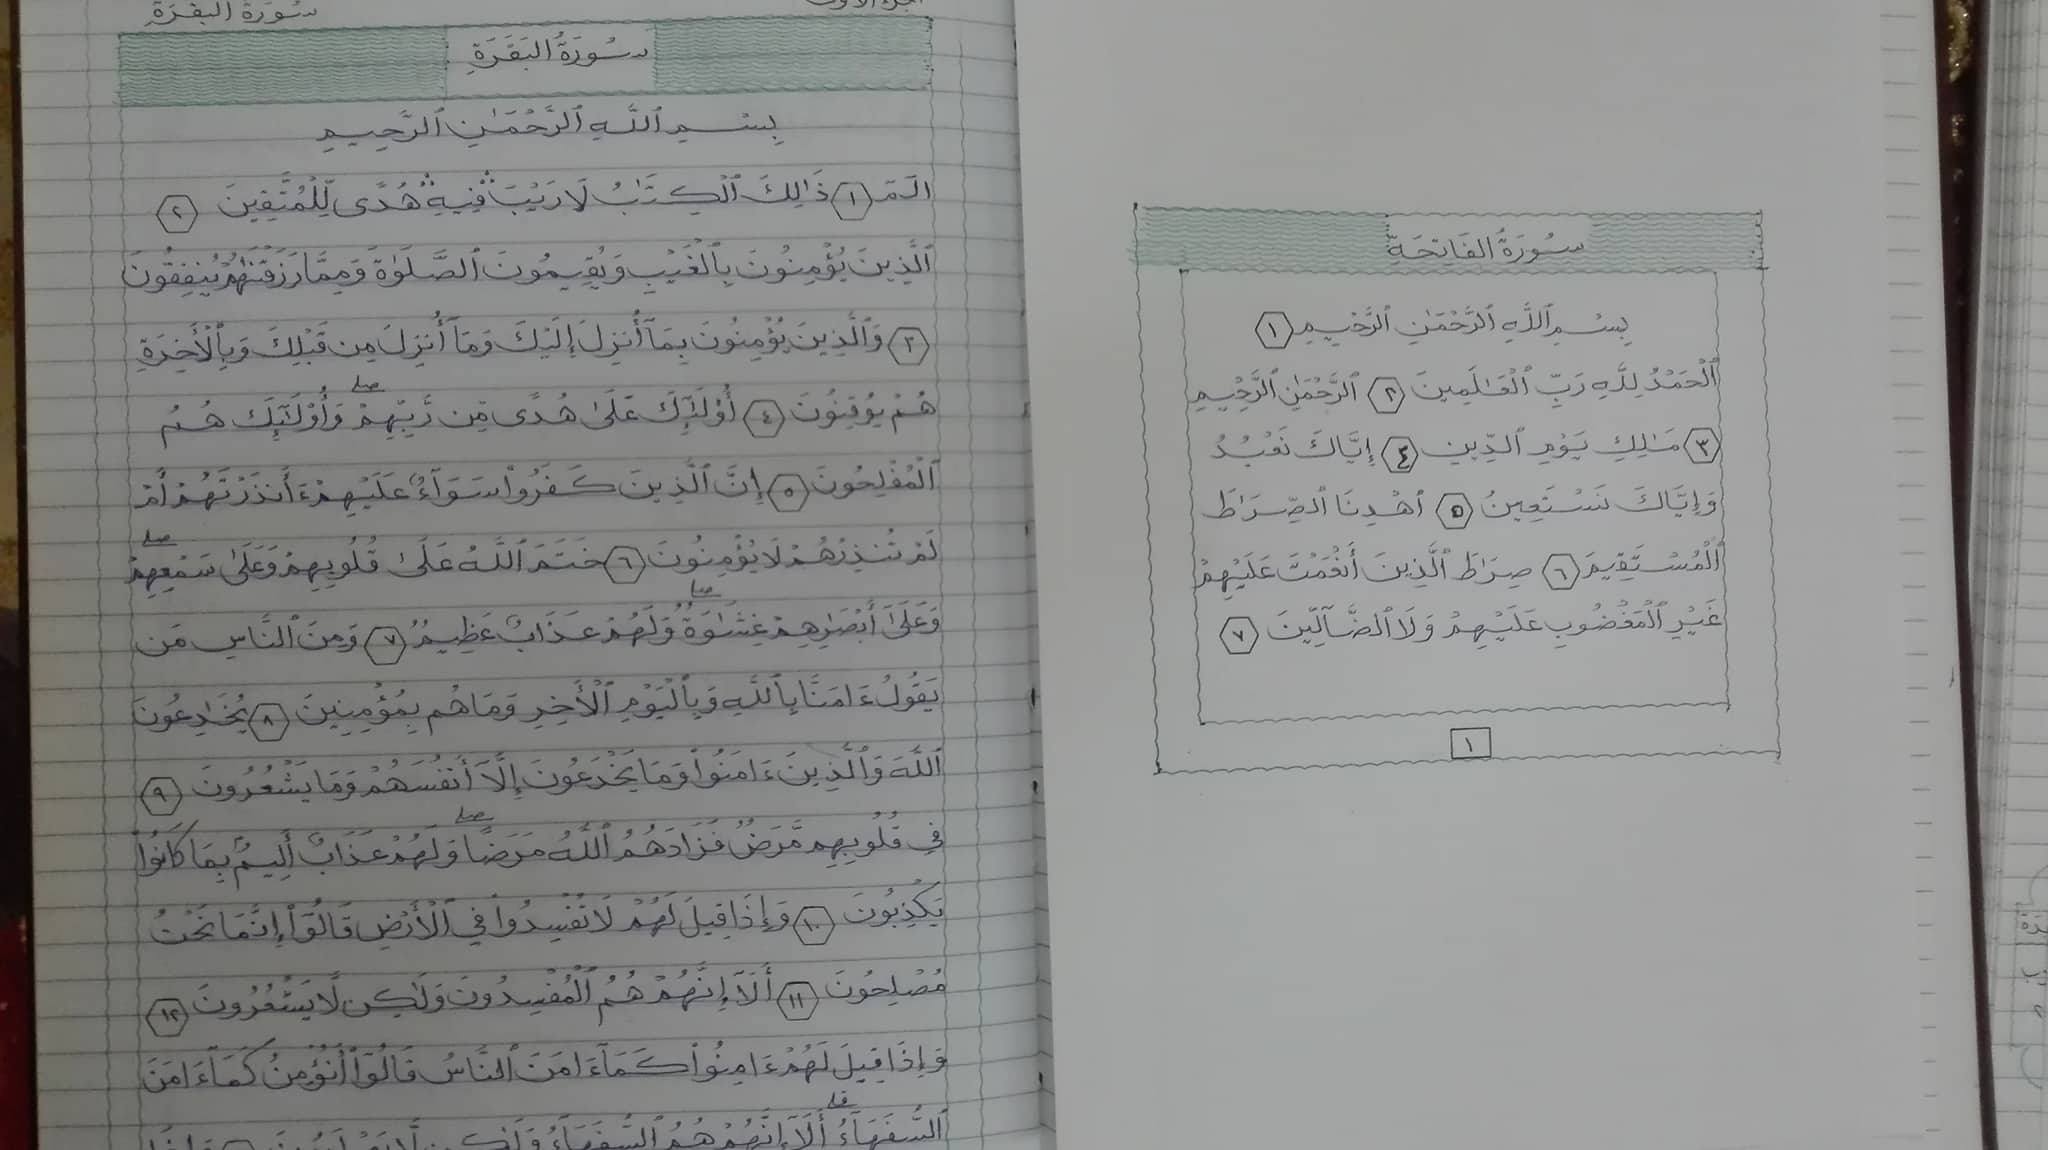 سُورَةُ الفَاتِحَةِ
بِسْمِ ٱللَّهِ ٱلرَّحْمَٰنِ ٱلرَّحِيمِ ١
ٱلْحَمْدُ لِلَّهِ رَبِّ ٱلْعَٰلَمِينَ ٢ ٱلرَّحْمَٰنِ ٱلرَّحِيمِ
٣ مَٰلِكِ يَوْمِ ٱلدِّينِ ٤ إِيَّاكَ نَعْبُدُ
وَإِيَّاكَ نَسْتَعِينُ ٥ ٱهْدِنَا ٱلصِّرَٰطَ
ٱلْمُسْتَقِيمَ ٦ صِرَٰطَ ٱلَّذِينَ أَنْعَمْتَ عَلَيْهِمْ
غَيْرِ ٱلْمَغْضُوبِ عَلَيْهِمْ وَلَا ٱلضَّآلِّينَ ٧
١
سُورَةُ البَقَرَةِ
سُورَةُ البَقَرَةِ
بِسْمِ ٱللَّهِ ٱلرَّحْمَٰنِ ٱلرَّحِيمِ
الٓمٓ ١ ذَٰلِكَ ٱلْكِتَٰبُ لَا رَيْبَ ۛ فِيهِ ۛ هُدًى لِّلْمُتَّقِينَ ٢
ٱلَّذِينَ يُؤْمِنُونَ بِٱلْغَيْبِ وَيُقِيمُونَ ٱلصَّلَوٰةَ وَمِمَّا رَزَقْنَٰهُمْ يُنفِقُونَ
٣ وَٱلَّذِينَ يُؤْمِنُونَ بِمَآ أُنزِلَ إِلَيْكَ وَمَآ أُنزِلَ مِن قَبْلِكَ وَبِٱلْأَخِرَةِ
هُمْ يُوقِنُونَ ٤ أُوْلَٰٓئِكَ عَلَىٰ هُدًى مِّن رَّبِّهِمْ ۖ وَأُوْلَٰٓئِكَ هُمُ
ٱلْمُفْلِحُونَ ٥ إِنَّ ٱلَّذِينَ كَفَرُوا۟ سَوَآءٌ عَلَيْهِمْ ءَأَنذَرْتَهُمْ أَمْ
لَمْ تُنذِرْهُمْ لَا يُؤْمِنُونَ ٦ خَتَمَ ٱللَّهُ عَلَىٰ قُلُوبِهِمْ وَعَلَىٰ سَمْعِهِمْ ۖ
وَعَلَىٰٓ أَبْصَٰرِهِمْ غِشَٰوَةٌ ۖ وَلَهُمْ عَذَابٌ عَظِيمٌ ٧ وَمِنَ ٱلنَّاسِ مَن
يَقُولُ ءَامَنَّا بِٱللَّهِ وَبِٱلْيَوْمِ ٱلْأَخِرِ وَمَا هُم بِمُؤْمِنِينَ ٨ يُخَٰدِعُونَ
ٱللَّهَ وَٱلَّذِينَ ءَامَنُوا۟ وَمَا يَخْدَعُونَ إِلَّآ أَنفُسَهُمْ وَمَا يَشْعُرُونَ ٩
فِي قُلُوبِهِم مَّرَضٌ فَزَادَهُمُ ٱللَّهُ مَرَضًا ۖ وَلَهُمْ عَذَابٌ أَلِيمٌۢ بِمَا كَانُوا۟
يَكْذِبُونَ ١٠ وَإِذَا قِيلَ لَهُمْ لَا تُفْسِدُوا۟ فِي ٱلْأَرْضِ قَالُوٓا۟ إِنَّمَا نَحْنُ
مُصْلِحُونَ ١١ أَلَآ إِنَّهُمْ هُمُ ٱلْمُفْسِدُونَ وَلَٰكِن لَّا يَشْعُرُونَ ١٢
وَإِذَا قِيلَ لَهُمْ ءَامِنُوا۟ كَمَآ ءَامَنَ ٱلنَّاسُ قَالُوٓا۟ أَنُؤْمِنُ كَمَآ ءَامَنَ
ٱلسُّفَهَآءُ ۗ أَلَآ إِنَّهُمْ هُمُ ٱلسُّفَهَآءُ وَلَٰكِن لَّا